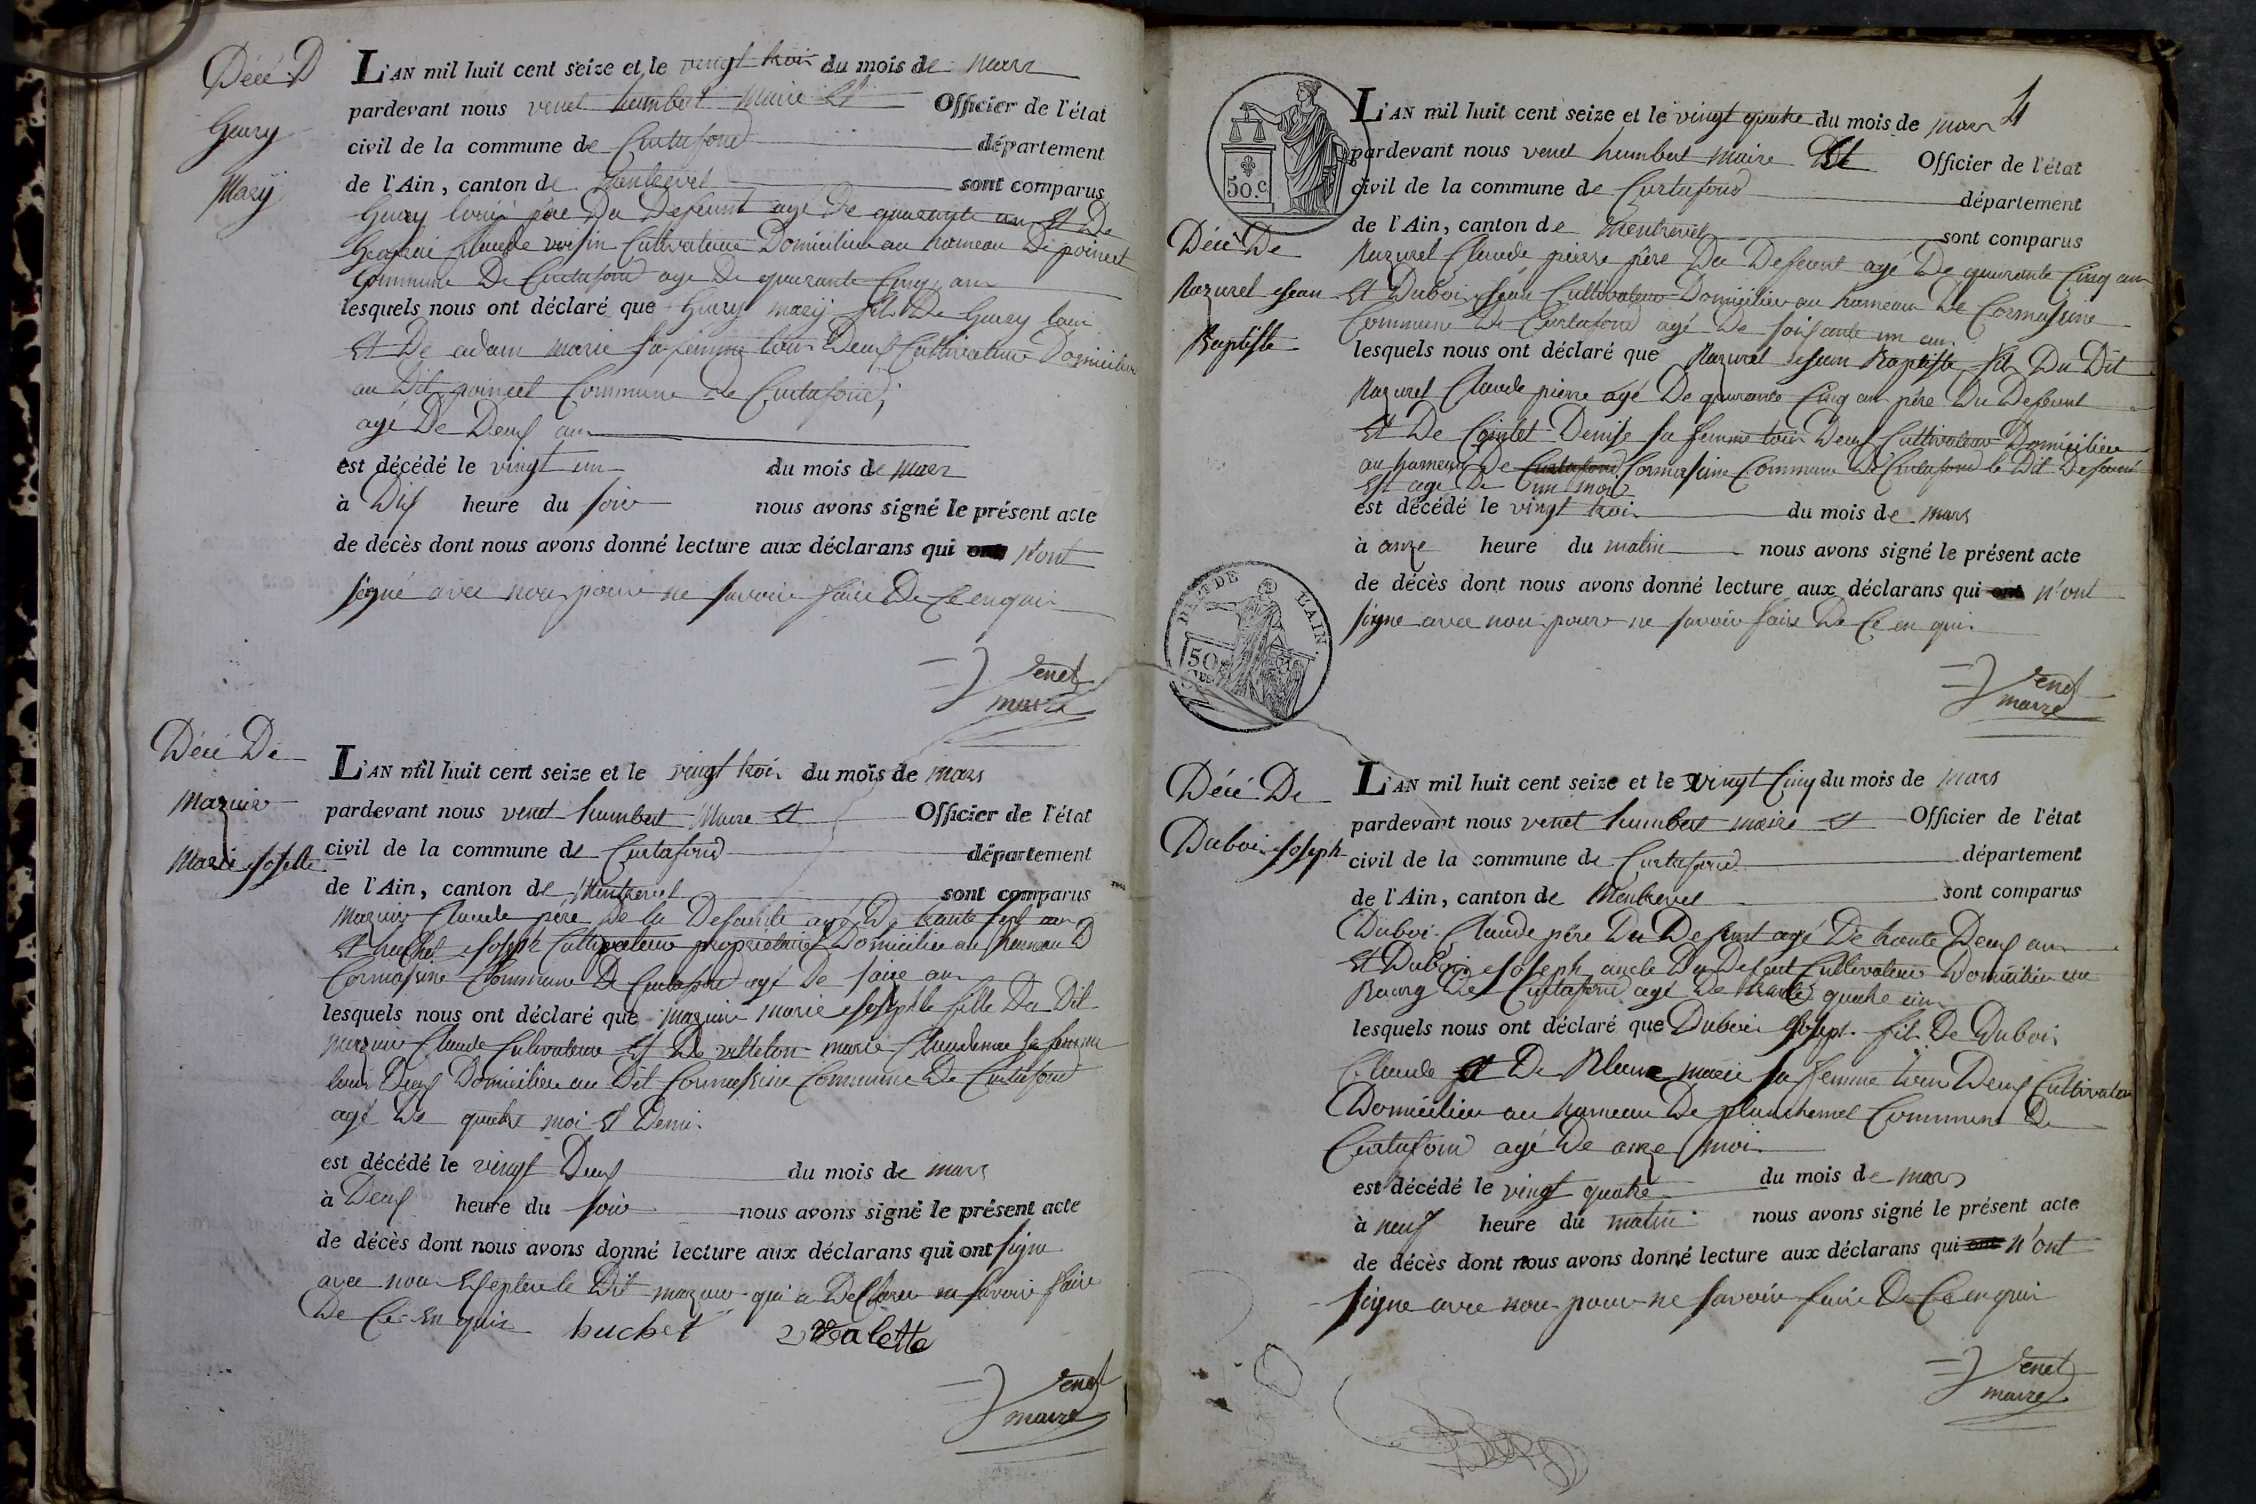 Décé D
Geury
Mary
L'AN mil huit cent seize et le vingt troi du mois de mars
pardevant nous venet humbert maire Et Officier de l'état
civil de la commune de Curtafond département
de l'Ain, canton de Montrevel sont comparus
Geury loui père Du Defeunt agé De quarante an Et De
Claude voisin Cultivateur Domicilier au hameau De poincet
Commune De Curtafond agé De quarante Cinq an
lesquels nous ont déclaré que Geury mary fils De Geury loui
Et De adam marie sa femme tous Deux Cultivateur Domicilier
au Dit poincet Commune De Curtafond,
agé De Deux an
est décédé le vingt un du mois de mars
à Dix heure du soir nous avons signé le présent acte
de décès dont nous avons donné lecture aux déclarans qui ont n'ont
signé avec nous pour ne savoir faire De Ce enquis
venet
maire
Décé De
Mazuir
Marie Josette
L'AN mil huit cent seize et le vingt troi du mois de mars
pardevant nous venet humbert Maire Et Officier de l'état
civil de la commune de Curtafond département
de l'Ain, canton de Montrevel sont comparus
Mazuir Claude père De la Defunte agé De trante sept an
Et huchet Joseph Cultivateur propriétaire Domicilier au hameau D
Cormassine Commune De Curtafond agé De an
lesquels nous ont déclaré que mazuir marie Josephte fille Du Dit
mazuir Claude Cultivateur Et De villeton marie Claudine sa femme
tous Deux Domicilier au Dit Cormassine Commune De Curtafond
agé De quatre moi Et Demi
est décédé le vingt Deux du mois de mars
à Deux heure du soir nous avons signé le présent acte
de décès dont nous avons donné lecture aux déclarans qui ont signe
avec nou Excpter le Dit mazuir qui a Declarer ne savoir faire
De Ce En quis huchet valette
venet
maire
4
50.c
L'AN mil huit cent seize et le vingt quatre du mois de mars
pardevant nous venet humbert maire Et Officier de l'état
civil de la commune de Curtafond département
de l'Ain, canton de Montrevel sont comparus
Décé De
Nazurel Jean
Baptiste
Nazurel Claude pierre père Du Defeunt agé De quarante Cinq an
Et Duboi Jean Cultivateur Domicilier au hameau De Cormassine
Commune De Curtafond agé De soisante un an
lesquels nous ont déclaré que Nazurel Jean Baptiste fils Du Dit
Nazurel Claude pierre agé De quarante Cinq an père Du Defeunt
Et De Cointet Denise sa femme tous Deux Cultivateur Domicilier
au hameau De Curtafond Cormassine Commune De Curtafond le Dit Defeunt
Est agé De un moi
est décédé le vingt troi du mois de mars
à onze heure du matin nous avons signé le présent acte
de décès dont nous avons donné lecture aux déclarans qui ont n'ont
signe avec nou pour ne savoir faire De Ce en quis
DE L'AIN.
50
venet
maire
Décé De
Duboi Joseph
L'AN mil huit cent seize et le vingt Cinq du mois de mars
pardevant nous venet humbert maire Et Officier de l'état
civil de la commune de Curtafond département
de l'Ain, canton de Montrevel sont comparus
Duboi Claude père Du Defeunt agé De trante Deux an
Et Duboi Joseph oncle Du Defeunt Cultivateur Domicilier au
Bourg De Curtafond agé De trante quatre an
lesquels nous ont déclaré que Duboi Joseph fils De Duboi
Claude Et De Blanc marie sa femme tous Deux Cultivateur
Domicilier au hameau De planchemel Commune De
Curtafond agé De onze moi
est décédé le vingt quatre du mois de mars
à neuf heure du matin nous avons signé le présent acte
de décès dont nous avons donné lecture aux déclarans qui ont n'ont
signe avec nou pour ne savoir faire De Ce enquis
venet
maire